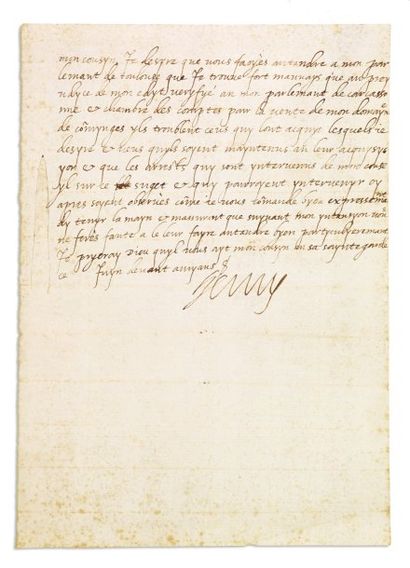 mon cousyn Je desyre que vous facyes antandre a mon par
lemant de toulouse que Je trouve fort mauvays que au prey
udyce de mon edyt veryfyé an mon parlemant de carcasso
nne & chambre des contes pour la vente de mon domayne
de comynges yls troublent ceus quy lont acquys lesquels Je
desyre & veus quyls soyent mayntenus an leur acquysy
syon & que les arrests quy sont yntervenus de mon conse
yl sur ce suget & quy pouroyent yntervenyr cy
apres soyent observés come Je vous comande byen expressemant
dy tenyr la mayn & massurant que suyvant mon yntansyon vous
ne ferés faute a le leur fayre antandre byen partyculyeremant
Je pryeray dieu quyl vous ayt mon cousyn an sa saynte garde
ce devant amyans
Henry